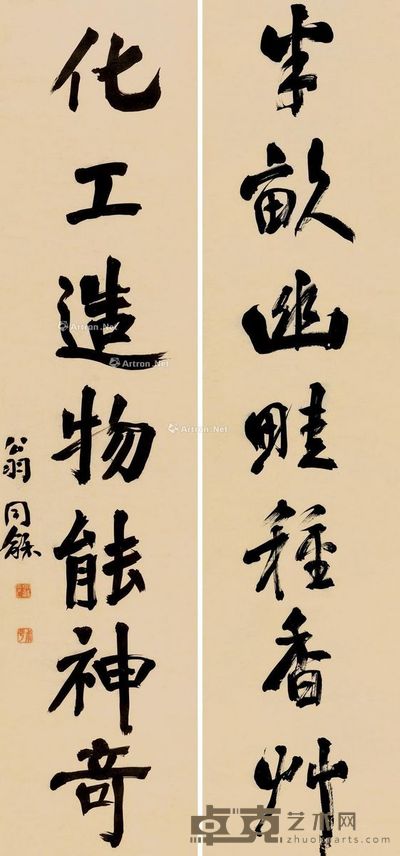 半畝幽畦種香艸
化工造物能神奇
翁同龢
Artron.Net
Artron.Net
Artron.Net
卓克艺术网
www.zhuokearts.com